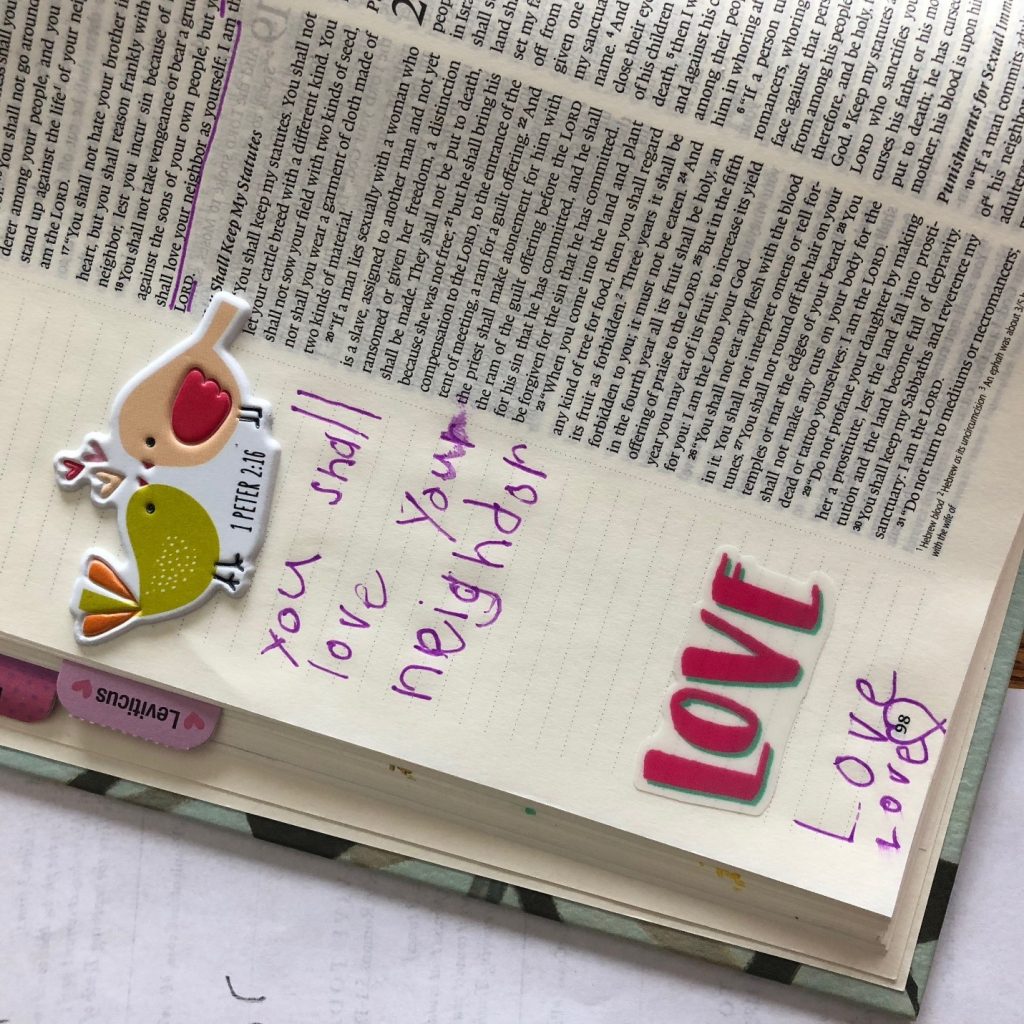 "You shall not go around
derer among your people, and you
stand up against the life¹ of your neigh
am the LORD.
17 "You shall not hate your brother in
heart, but you shall reason frankly with
neighbor, lest you incur sin because of
18 You shall not take vengeance or bear a grud
against the sons of your own people, but
shall love your neighbor as yourself: I am
LORD.
Shall Keep My Statutes
You shall keep my statutes. You shall not
let your cattle bred with a different kind. You
shall not sow your field with two kinds of seed,
nor shall you wear a garment of cloth made of
two kinds of material.
20 "If a man lies sexually with a woman who
is a slave, assigned to another man and not yet
ransomed or given her freedom, a distinction
shall be made. They shall not be put to death,
because she was not free; 21 but he shall bring his
compensation to the LORD, to the entrance of the
tent of meeting, a ram for a guilt offering. 22 And
the priest shall make atonement for him with
the ram of the guilt offering before the LORD
for his sin that he has committed, and he shall
be forgiven for the sin that he has committed.
23 "When you come into the land and plant
any kind of tree for food, then you shall regard
its fruit as forbidden.² Three years it shall be
forbidden to you; it must not be eaten. 24 And
in the fourth year all its fruit shall be holy, an
offering of praise to the LORD. 25 But in the fifth
year you may eat of its fruit, to increase its yield
for you: I am the LORD your God.
26 "You shall not eat any flesh with the blood
in it. You shall not interpret omens or tell for-
tunes. 27 You shall not round off the hair on your
temples or mar the edges of your beard. 28 You
shall not make any cuts on your body for the
dead or tattoo yourselves: I am the LORD.
29 "Do not profane your daughter by making
her a prostitute, lest the land fall into prosti-
tution and the land become full of depravity.
30 You shall keep my Sabbaths and reverence my
sanctuary: I am the LORD.
31 "Do not turn to mediums or necromancers;
¹ Hebrew blood ² Hebrew as its uncircumcision ³ An ephah was about 3/5
with the wife of
2
people
in Isra
shall s
land sh
set my fa
off from
given one
my sanctu
name. 4 And
close their ey
of his children
5 then I w
and against his
among their peo
him in whoring
6 "If a person
romancers, whoring
face against that per
from among his people.
therefore, and be holy,
God. 8 Keep my statutes a
LORD who sanctifies you
curses his father or his m
put to death; he has curse
mother; his blood is upon hi
Punishments for Sexual Immo
10 "If a man commits
of⁴ his neighbor,
adulteress
1 PETER 2:16
you shall
love your
neighdor
LOVE
Love
Love
98
Leviticus